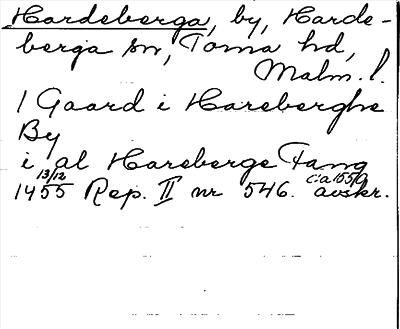 Hardeberga, by, Harde-
berga sn, Torna hd,
Malm. l.
1 Gaard i Hareberghe
By
i al Hareberge Fang
1455 13/12 Rep. II nr 546. c:a 1550 avskr.